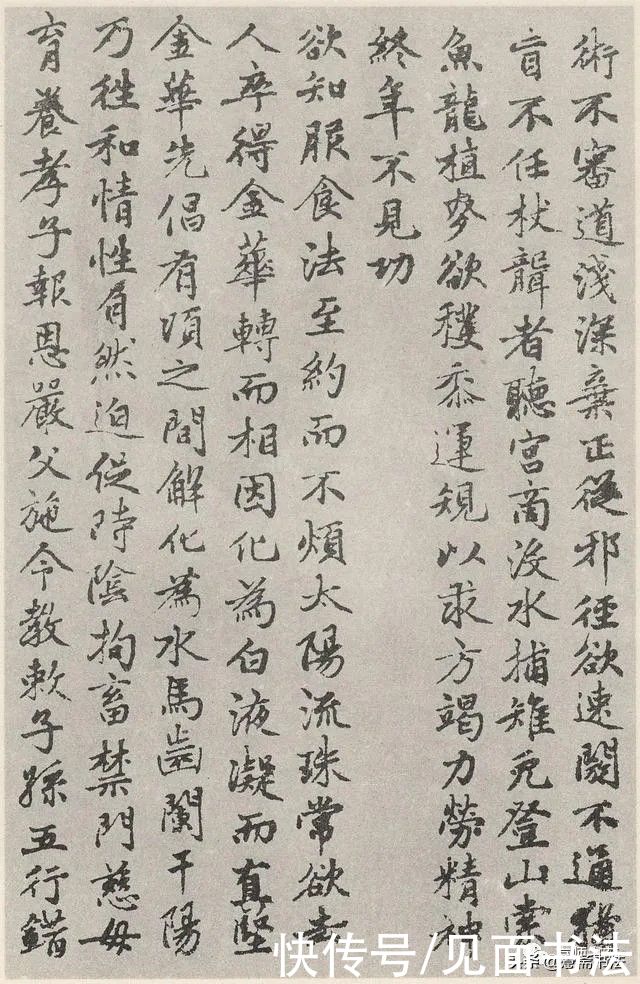 術不審道淺深棄正從邪徑欲速閼不通猶
盲不任杖聾者聽宮商没水捕雉兔登山索
魚龍植麥欲穫黍運規以求方竭力勞精神
終年不見功
欲知服食法至約而不煩太陽流珠常欲去
人卒得金華轉而相因化為白液凝而真堅
金華先倡有頃之間解化為水馬齒闌干陽
乃往和情性自然迫促時陰拘畜禁門慈母
育養孝子報恩嚴父施令教敕子孫五行錯
快传号/见面书法